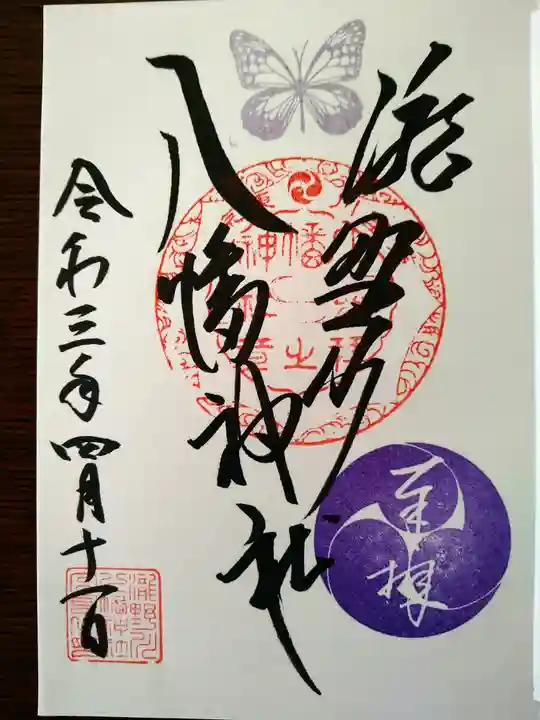 滝野川
八幡神社
令和三年四月十一日
奉拝